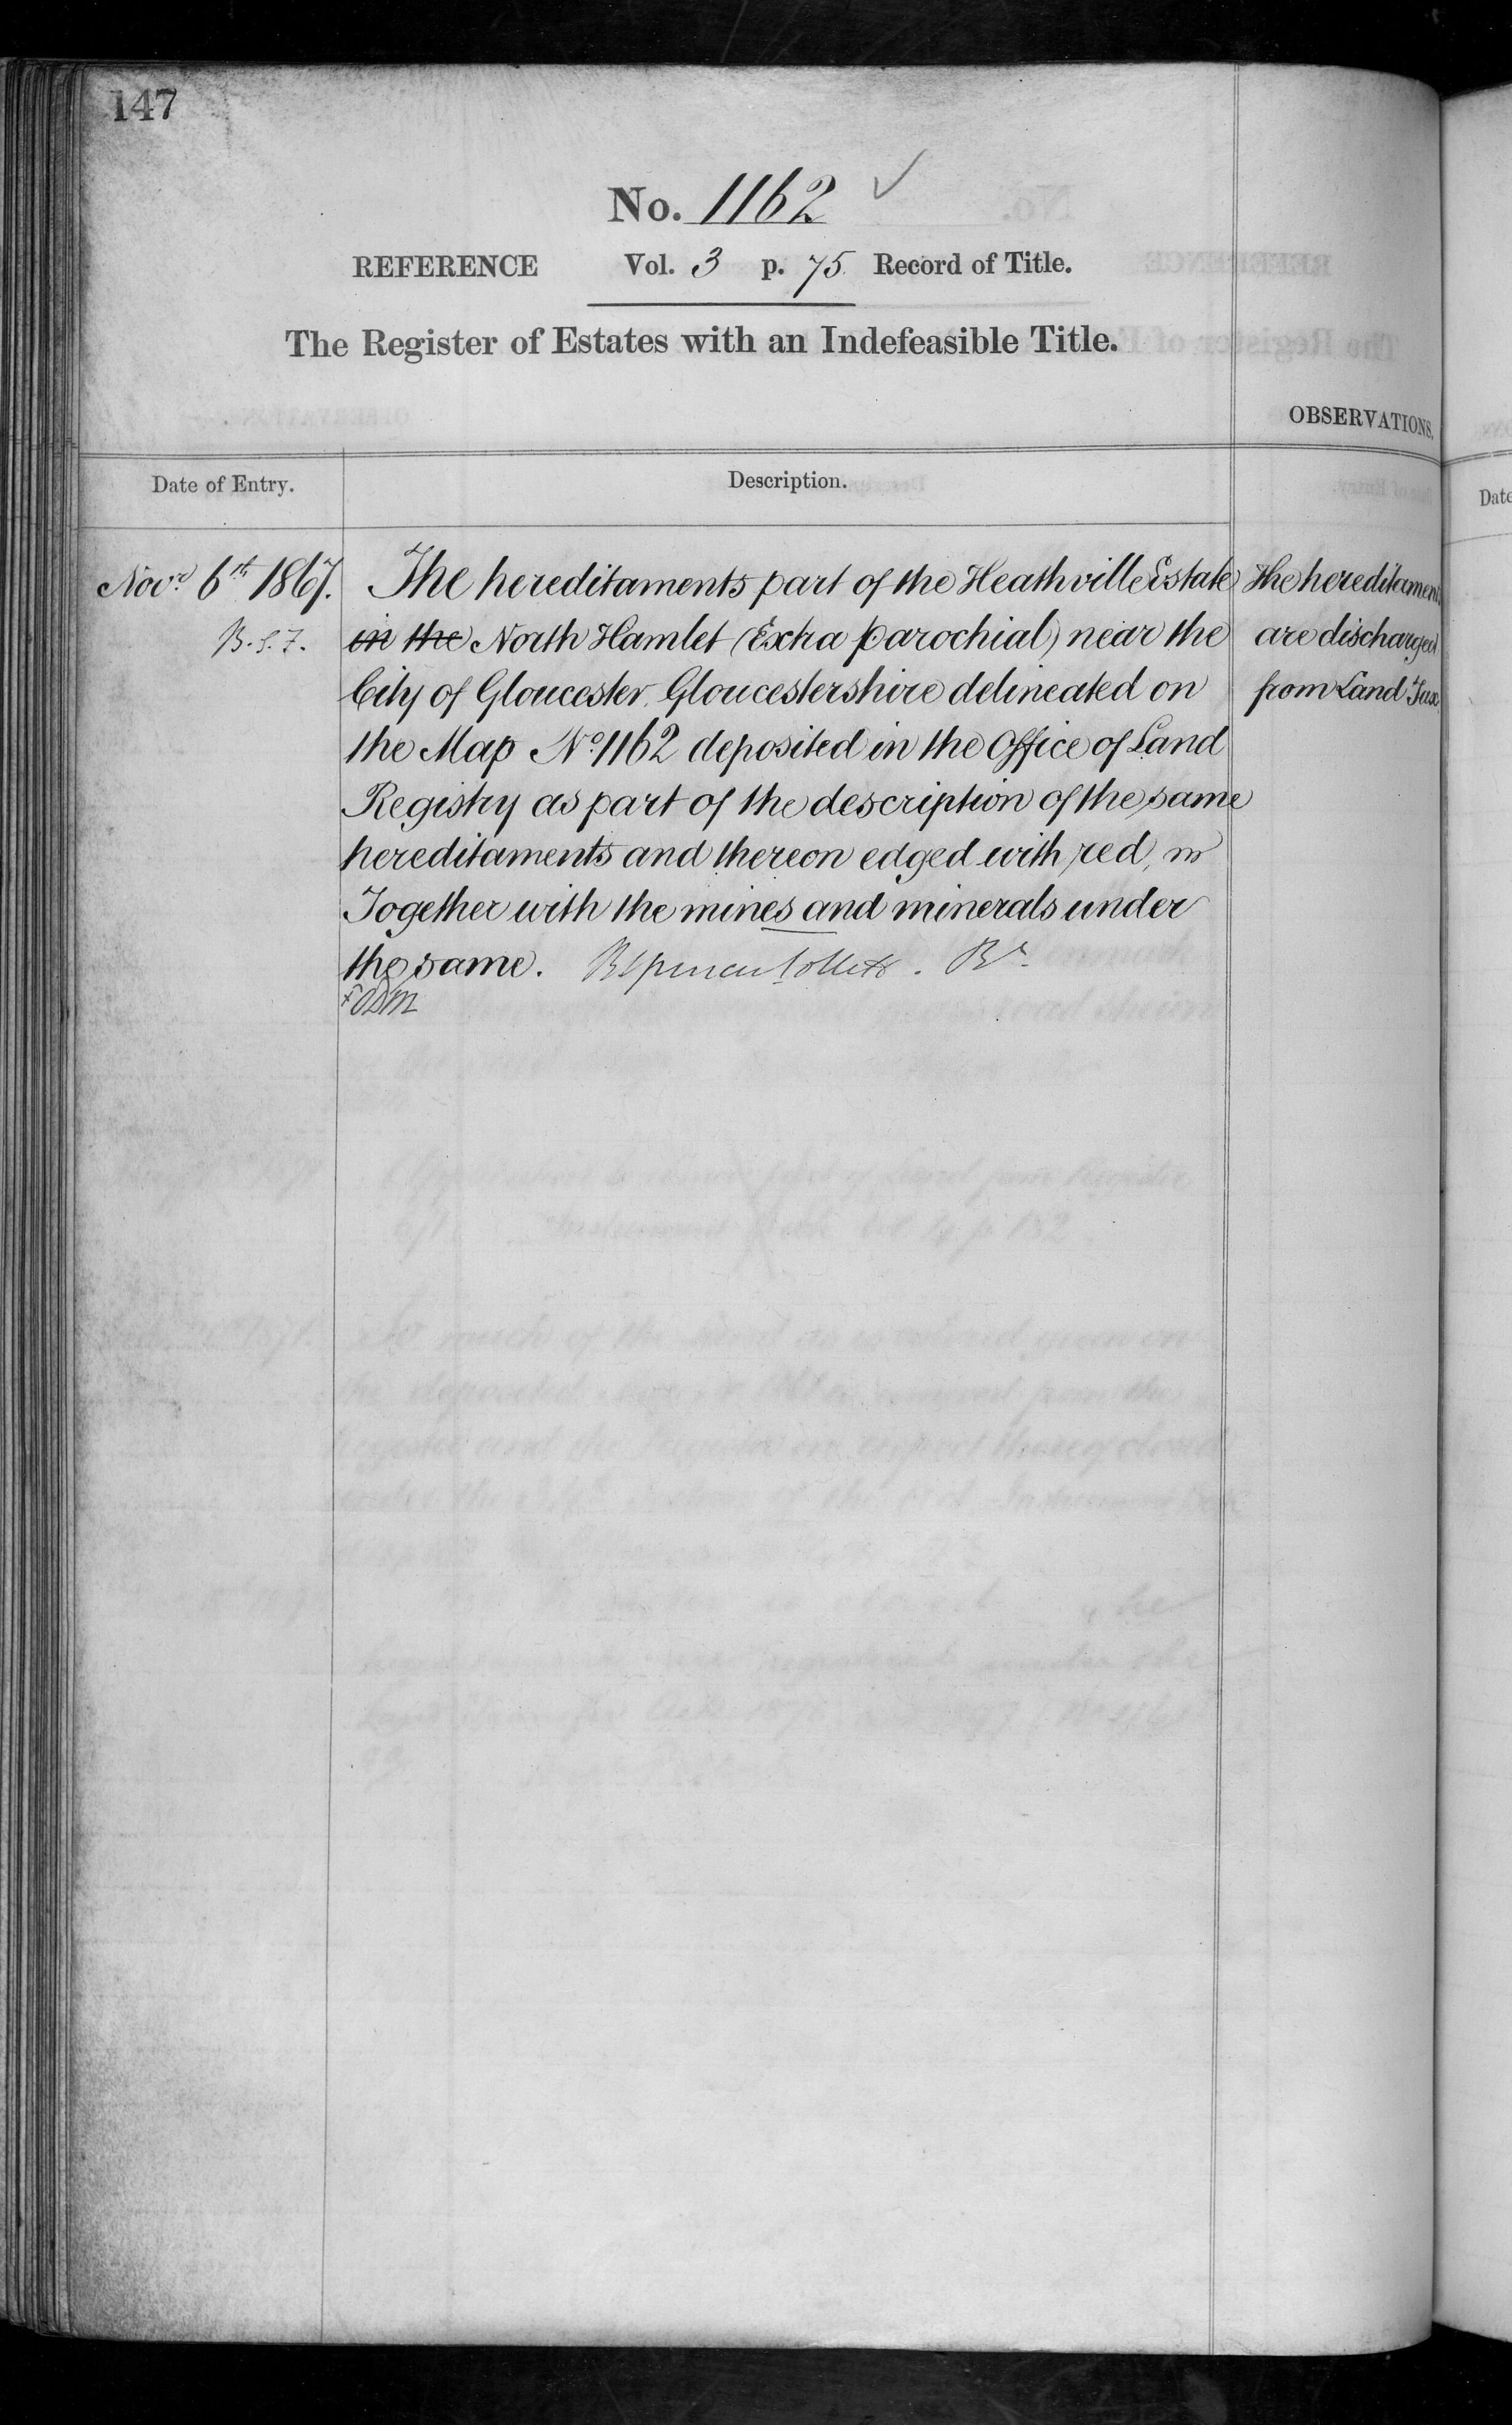 147
No. 1162 ✓
REFERENCE Vol. 3 p. 75 Record of Title.
The Register of Estates with an Indefeasible Title.
OBSERVATIONS.
Date of Entry.
Description.
Date
Novr 6th 1867.
The hereditaments part of the Heathville Estate
in the North Hamlet (Extra parochial) near the
City of Gloucester, Gloucestershire delineated on
the Map No 1162 deposited in the Office of Land
Registry as part of the description of the same
hereditaments and thereon edged with red,
Together with the mines and minerals under
the same.
The hereditaments
are discharged
from Land Tax.